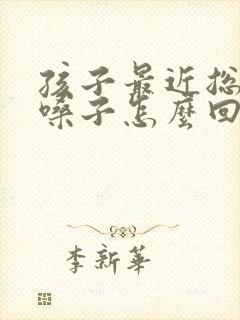 孩子最近总
嗓子怎麼回
李新華